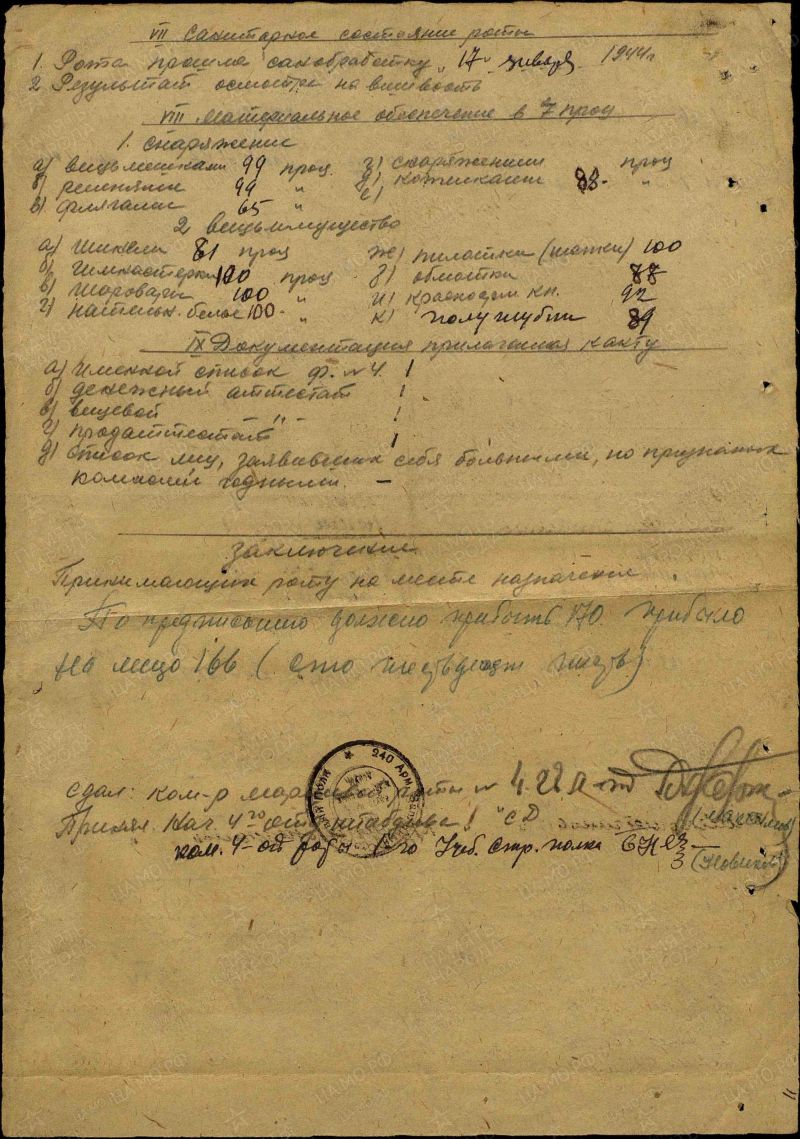 VII Санитарное состояние роты
1. Рота прошла санобработку "17" января 1944г
2 Результат осмотра на вшивость
VIII Материальное обеспечение в % проц
1. снаряжение
а) вещьмешками 99 проц. г) снаряжением проц
б) ремнями 99 " д) 88 - "
в) флягами 65 " е)
2 вещьимущество
а) шинели 81 проц ж) пилотки (шапки) 100
б) гимнастерки 100 проц. з) обмотки 88
в) шаровары 100 " и) красноарм кн. 92
г) нательн. белье 100 - " к) полушубки 89
IX Документация прилагаемая к акту
а) Именной список ф. №4. 1
б) денежный аттестат 1
в) вещевой —"— 1
г) продаттестат 1
д) список лиц, заявивших себя больными, но признаных
комисией годными. —
Заключение
Принимающих роту на месте назначения
По предписанию должно прибыть 170. прибыло
на лицо 166 (сто шестьдесят шесть)
240 Арм
сдал: ком-р роты № 4.22
Принял. Нач 4
ком. 4-ой роты 1го Учеб. стр. полка
(Новиков)